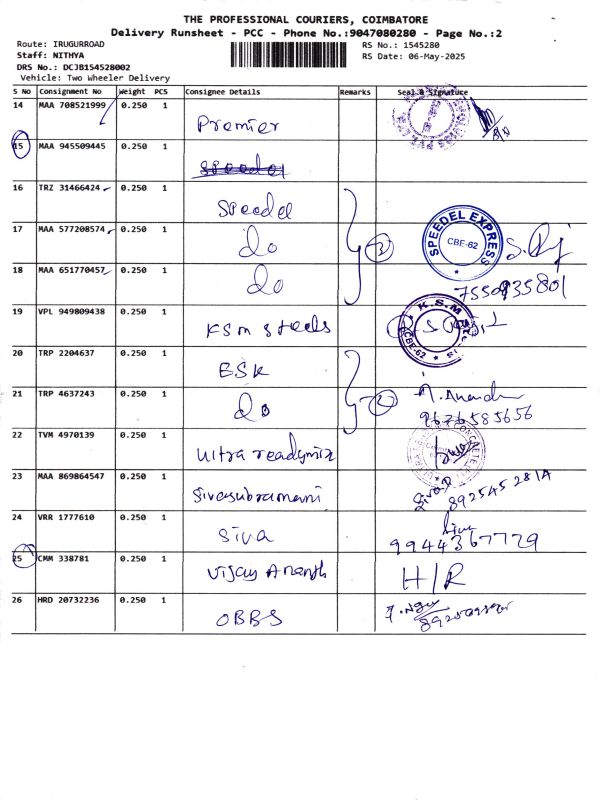 THE PROFESSIONAL COURIERS, COIMBATORE
Delivery Runsheet - PCC - Phone No.:9047080280 - Page No.:2
Route: IRUGURROAD RS No.: 1545280
Staff: NITHYA RS Date: 06-May-2025
DRS No.: DCJB154528002
Vehicle: Two Wheeler Delivery
S No Consignment No Weight PCS Consignee Details Remarks Seal & Signature
14 MAA 708521999 0.250 1 Premier
15 MAA 945509445 0.250 1 Speedel
16 TRZ 31466424 0.250 1 Speedel
17 MAA 577208574 0.250 1 do 3 SPEEDEL EXPRESS CBE-62
18 MAA 651770457 0.250 1 do
19 VPL 949809438 0.250 1 KSM Steels K.S.M CBE-62
20 TRP 2204637 0.250 1 BSK
21 TRP 4637243 0.250 1 do 2 9626585656
22 TVM 4970139 0.250 1 Ultra readymix
23 MAA 869864547 0.250 1 Sivasubramani
24 VRR 1777610 0.250 1 Siva Siva 9944367779
25 CMM 338781 0.250 1 Vijay Ananth H/R
26 HRD 20732236 0.250 1 OBBS